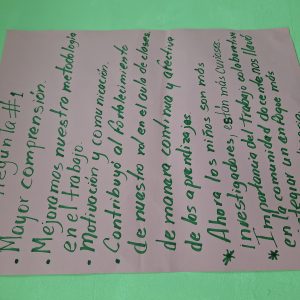 Pregunta #1
• Mayor comprensión.
• Mejoramos nuestra metodología
en el trabajo.
• Motivación y comunicación.
• Contribuyó al fortalecimiento
de nuestro rol en el aula de clases
de manera continua y afectiva
de los aprendizajes.
* Ahora los niños son más
Investigadores, están más curiosos.
* Importancia del trabajo colaborativo
la comunidad docente nos llevó